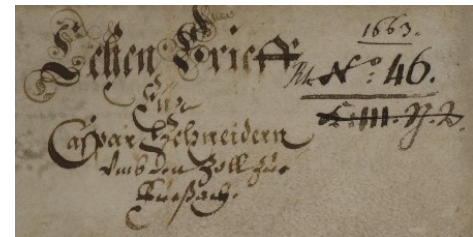 1663.
Lehen Brieff
No: 46.
Für
Caspar Schneidern
Umb den Zoll zue
Fueßach.